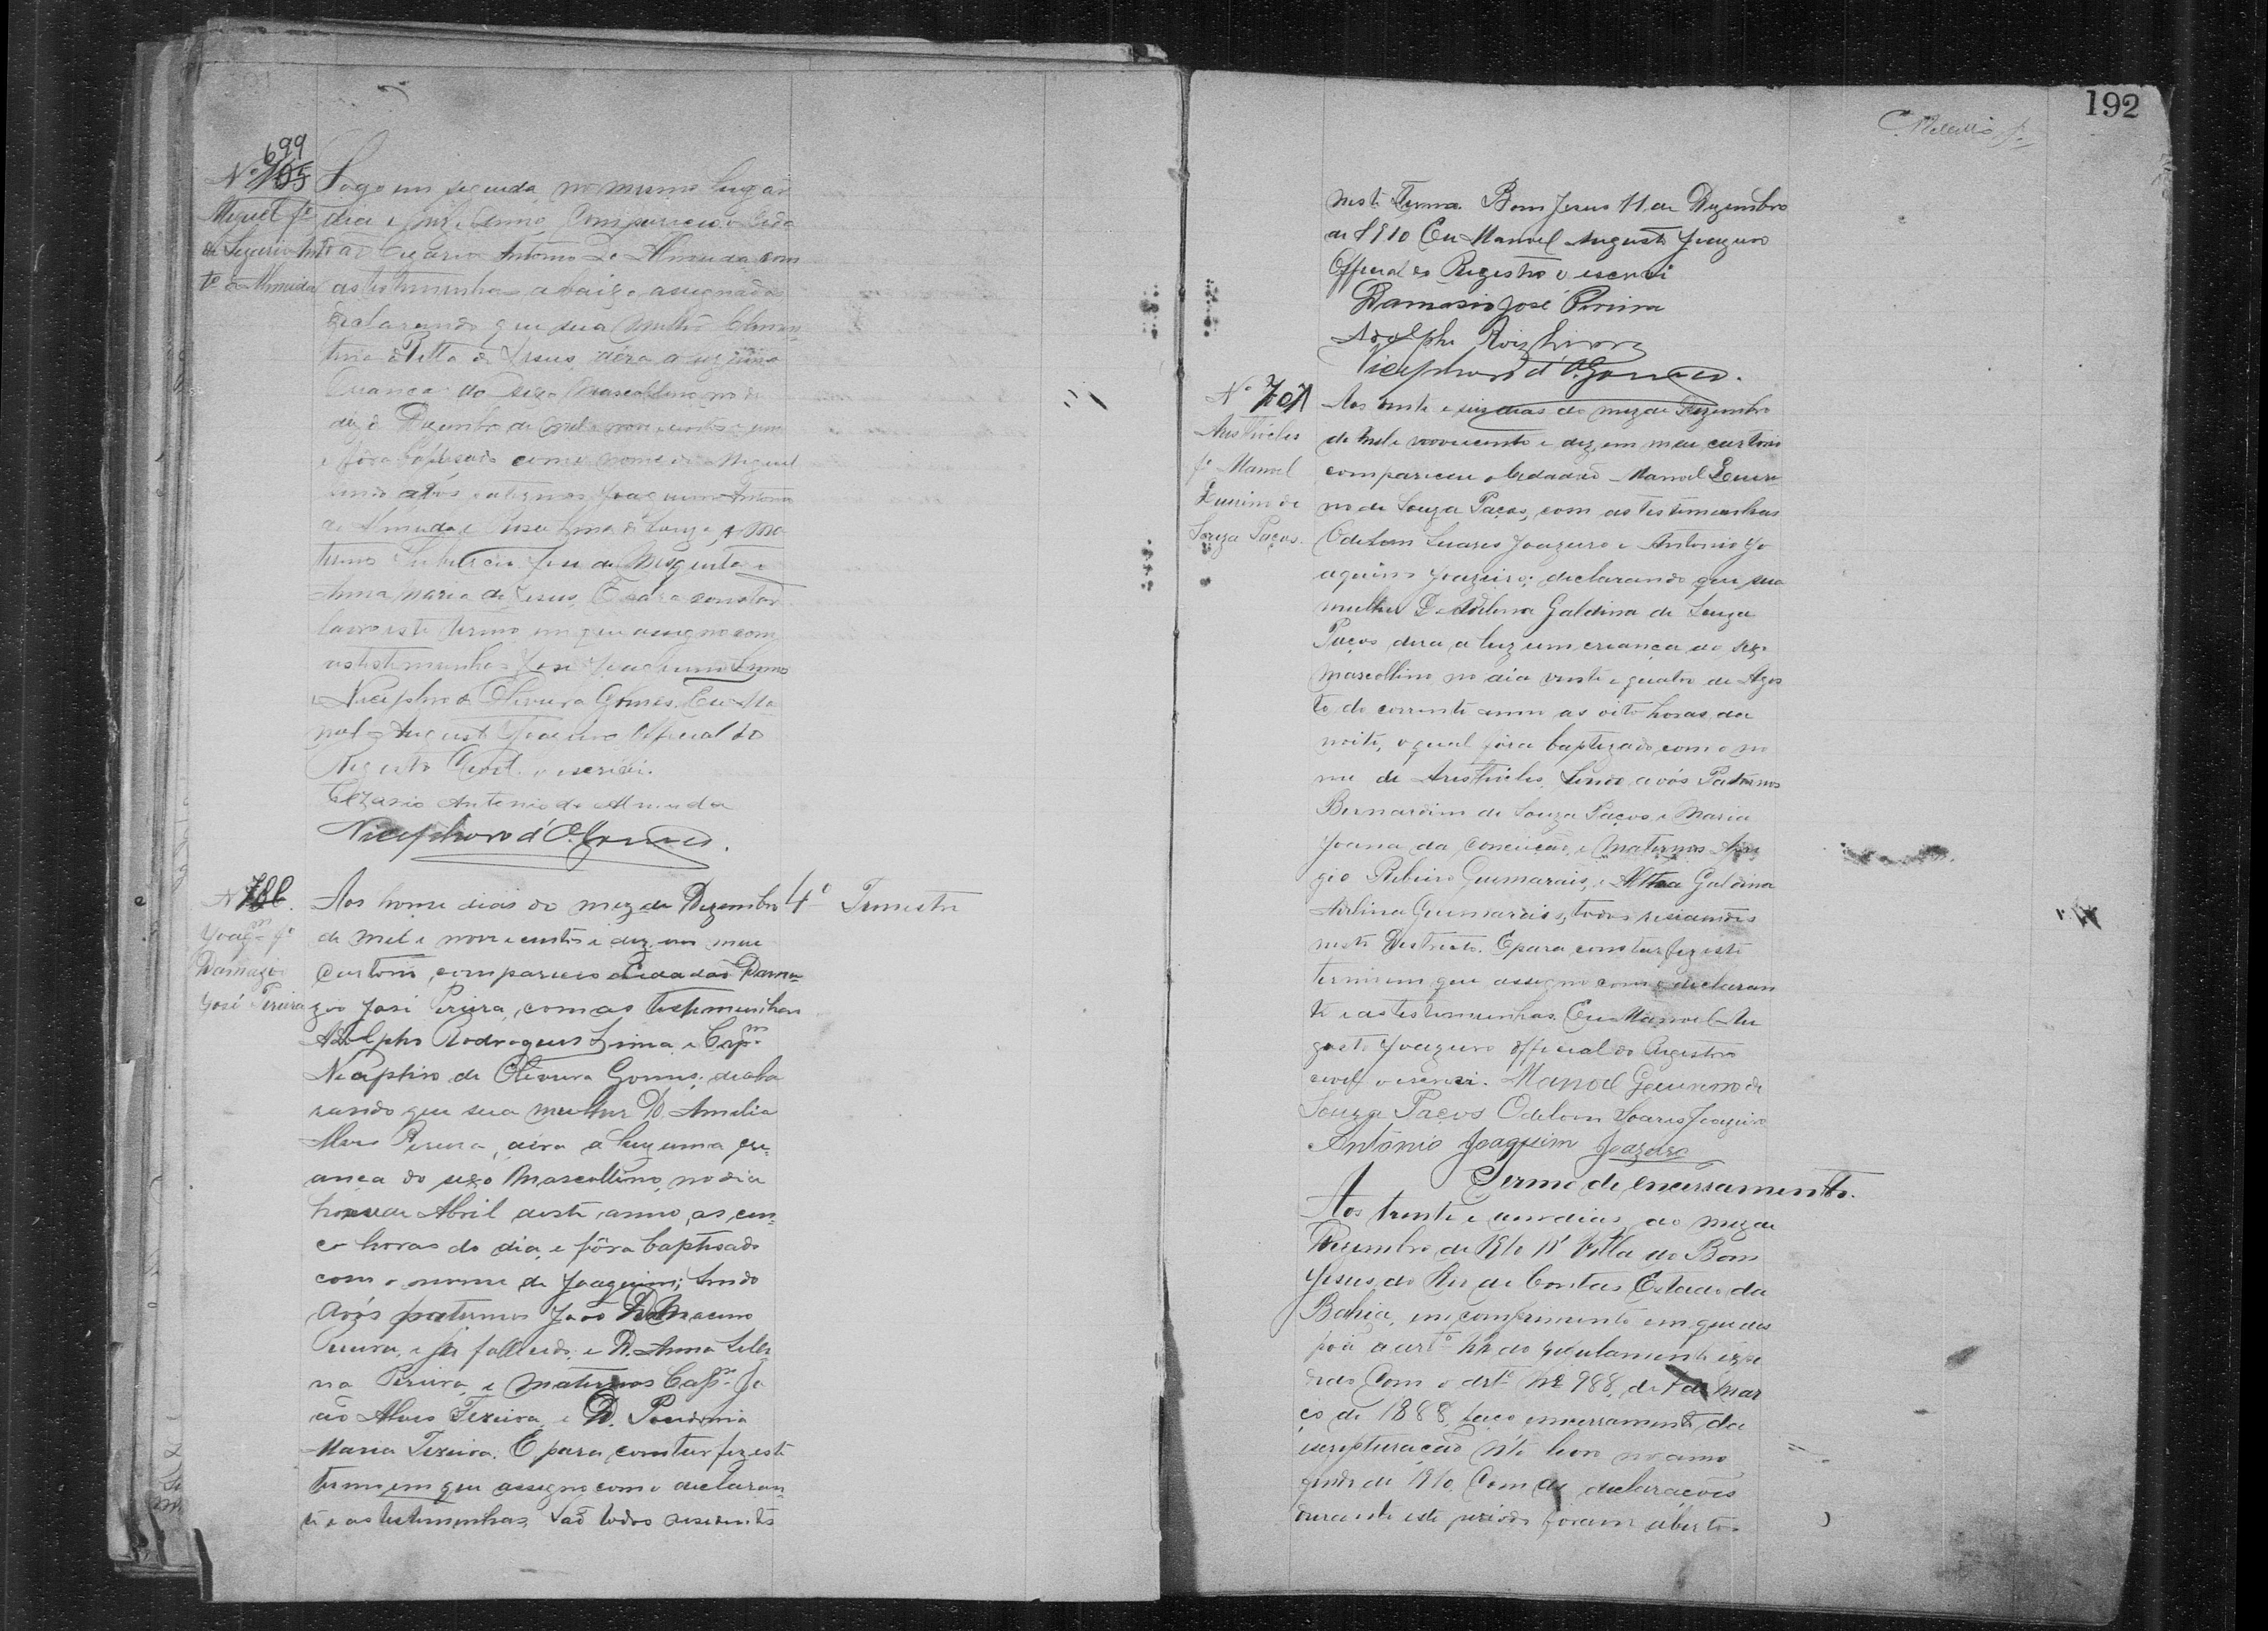 699
Nº 705
Miguel fº
de Cezario An
tº de Almeida
Logo em seguida no mesmo lugar
dia e mez e anno, compareceu o cida
dão Cezario Antonio de Almeida com
as testemunhas abaixo assignadas
declarando que sua mulher Clemen-
tina Ritta de Jesus, déra a luz uma
criança do sexo masculino no di
dez de Dezembro de mil e nove centos e um
e fôra baptisado com o nome de Miguel
sendo avós paternos Joaquim Antonio
de Almeida e de Souza, e Ma
ternos José de Mesquita e
Anna Maria de Jesus. E para constar
lavro este termo em que assigno com
as testemunhas José Joaquim
e Nicephoro de Oliveira Gomes. Eu Ma
noel Augusto Joazeiro Official do
Registro Civil o escrevi.
Cezario Antonio de Almeida
Nicephoro d'O. Gomes.
Nº 700.
Joaqm fº
Damazio
José Pereira
Aos honze dias do mez de Dezembro
4º Trimestre
de mil e nove centos e dez em meu
Cartorio, compareceu o cidadão Dama-
zio José Pereira, com as testemunhas
Adolpho Rodrigues Lima e Capm
Nicephoro de Oliveira Gomes; decla
rando que sua mulher D. Amelia
Alves Pereira, déra a luz uma cri-
ança do sexo Mascullino, no dia
honze de Abril deste anno, as cin-
co horas do dia, e fôra baptisado
com o nome de Joaquim; sendo
Avós paternos João Damaceno
Pereira, e já fallecido, e D. Anna
na Pereira, e maternos Capm Jo
ão Alves Texeira, e D.
Maria Texeira. E para constar fiz este
termo em que assigno com o declaran-
te e as testemunhas, são todos residentes
192
neste Termo. Bom Jesus 11 de Dezembro
de 1910 Eu Manoel Augusto Joazeiro
Official do Registro o escrevi
Damasio José Pereira
Adolpho Roiz Lima
Nicephoro d'O. Gomes.
Nº 701
Aristhicles
fº Manoel
de
Souza Paços.
Aos vinte e seis dias do mez de Dezembro
de mil e novecentos e dez, em meu cartorio
compareceu o Cidadão Manoel
no de Souza Paços, com as testemunhas
Odelom Soares Joazeiro e Antonio Jo
aquim Joazeiro; declarando que sua
mulher D. Galdina de Souza
Paços, dera a luz um criança do sexo
mascollino no dia vinte e quatro de Agos
to do corrente anno as oito horas da
noite, o qual fôra baptizado com o no
me de Aristhicles, sendo avós Paternos
Bernardim de Souza Paços e Maria
Joana da Conceição, e Maternos
gio Ribeiro Guimarais, e Galdina
Guimarais, todos residentes
neste Districto. E para constar fiz este
termo em que assigno com o declaran
te e as testemunhas. Eu Manoel Au
gusto Joazeiro official do Registro
civil o escrevi. Manoel de
Souza Paços Odelom Soares Joazeiro
Antonio Joaquim Joazeiro
Termo de encerramento.
Aos trinta e um dias do mez de
Dezembro de 1910 N' Villa do Bom
Jesus do Rio de Contas Estado da
Bahia, em comprimento em que dis
põe o artº do regulamento expe
dido com o Nº 9886, de 7 de Mar
ço de 1888, faço encerramento da
escripturação n'te livro no anno
findo de 1910. Com as declarações
durante este periodo foram abertos